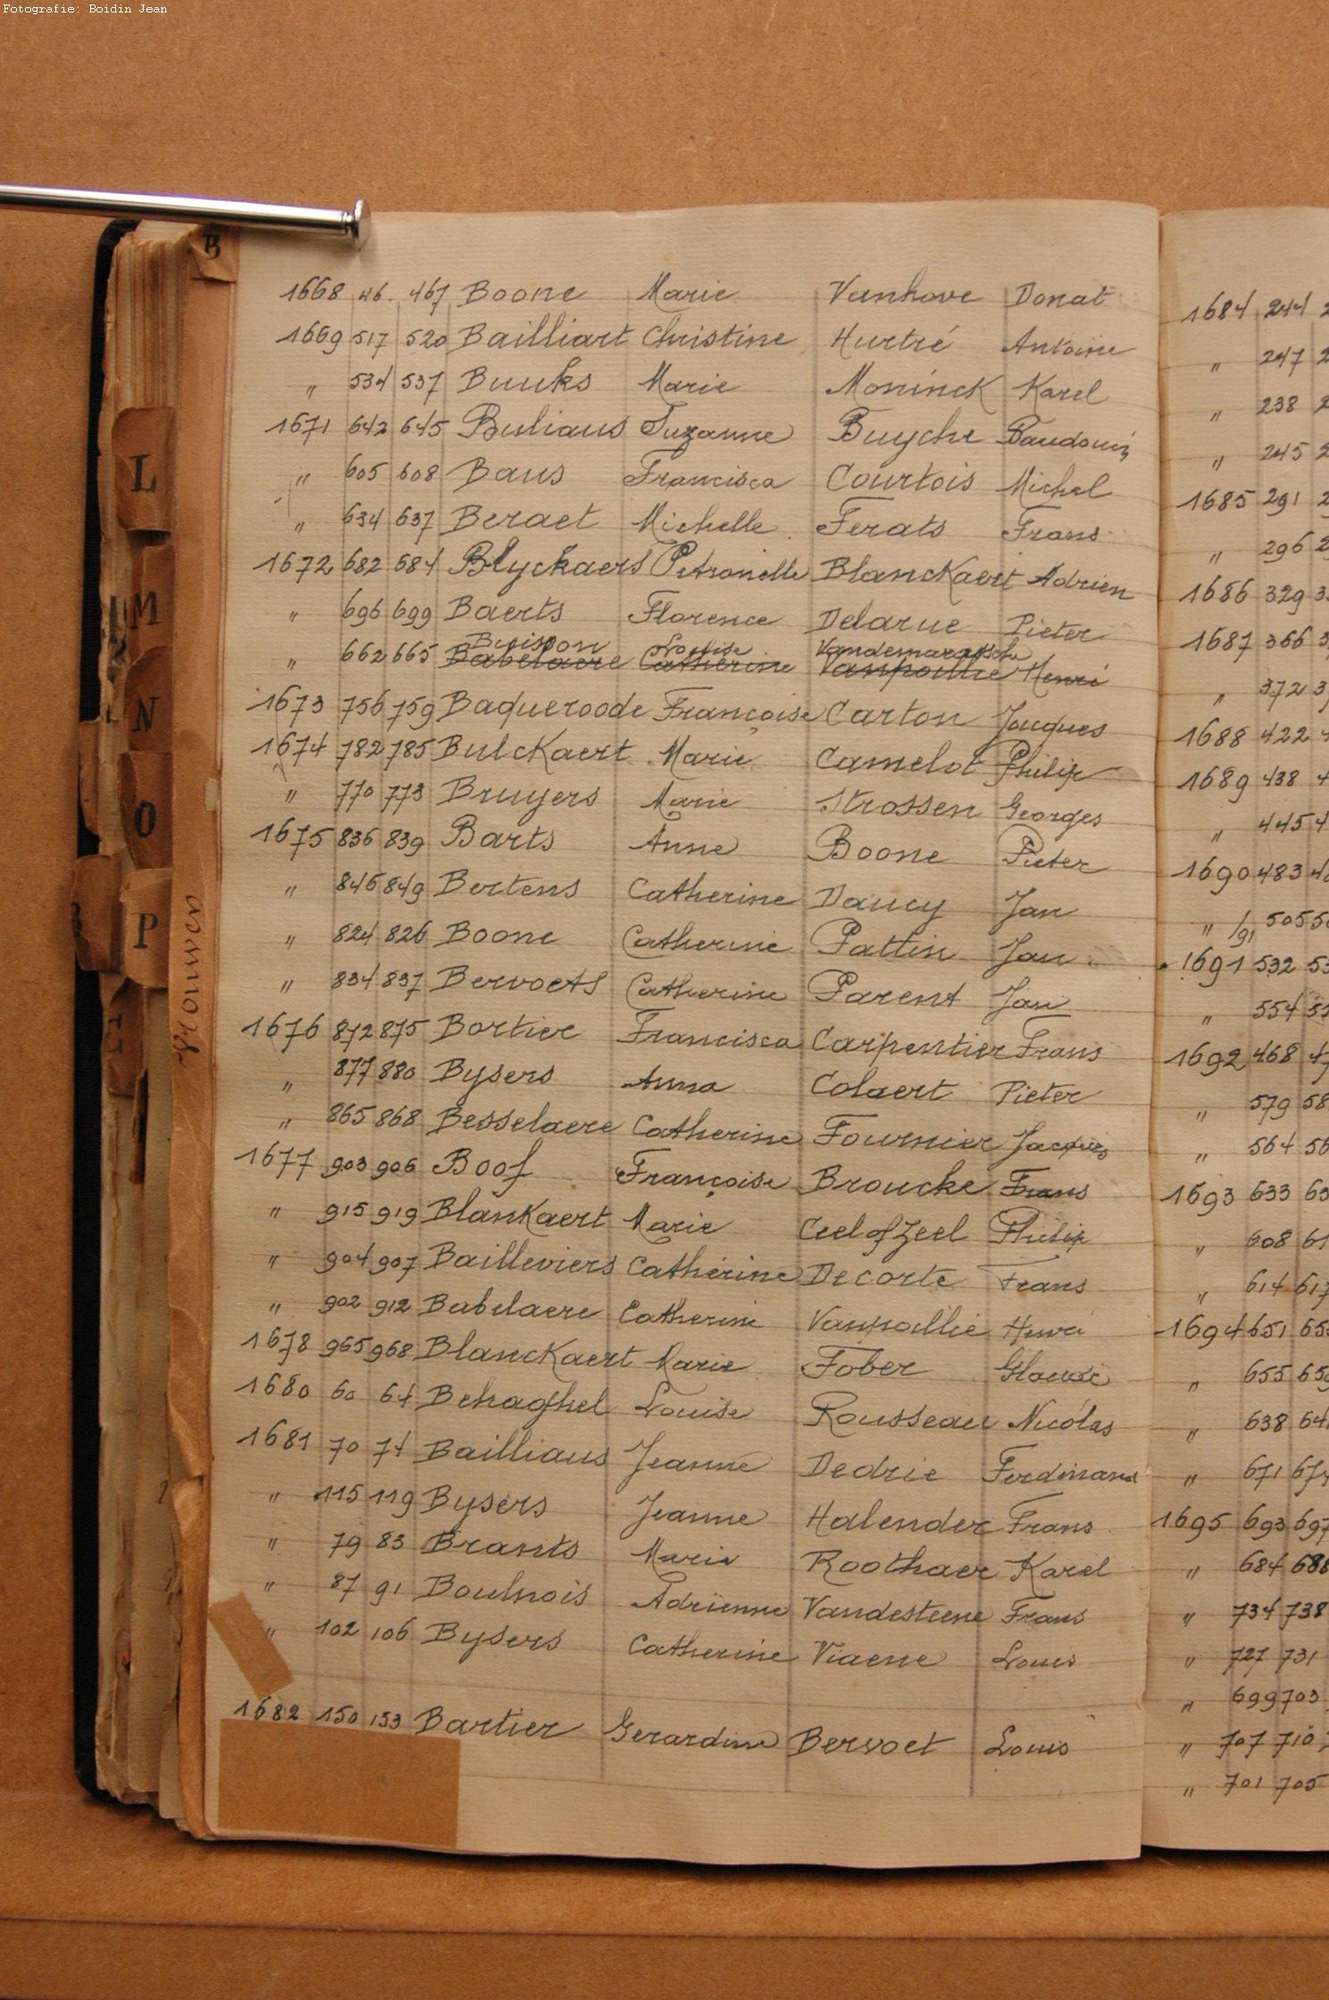 Fotografie: Boidin Jean
B
1668 46. 467 Boone Marie Vanhove Donat
1669 517 520 Bailliart Christine Hurtré Antoine
" 534 537 Buuks Marie Moninck Karel
1671 642 645 Buliaus Suzanne Buyche Baudouin
" 605 608 Baus Francisca Courtois Michel
" 634 637 Beraet Michelle Ferats Frans
1672 682 684 Blyckaers Petronelle Blanckaert Adrien
" 696 699 Baerts Florence Delarue Pieter
Buisson Louise
" 662 665 Babelaere Catherine Vanpoillie Henri
1673 756 759 Baqueroode Françoise Carton Jacques
1674 782 785 Bulckaert Marie Camelot Philip
" 770 773 Bruyers Marie Strossen Georges
1675 836 839 Barts Anne Boone Pieter
" 846 849 Bertens Catherine Daucy Jan
" 824 826 Boone Catherine Pattin Jan
" 834 837 Bervoets Catherine Parent Jan
1676 872 875 Bortier Francisca Carpentier Frans
" 877 880 Bysers Anna Colaert Pieter
" 865 868 Besselaere Catherine Fournier Jacques
1677 903 906 Boof Françoise Broucke Frans
" 915 919 Blankaert Marie Ceelofzeel Philip
" 904 907 Bailleviers Cathérine Decorte Frans
" 902 912 Babelaere Catherine Vanpoillie Henri
1678 965 968 Blanckaert Marie Fober
1680 60 64 Behaghel Louise Rousseau Nicolas
1681 70 74 Bailliaus Jeanne Dedrie Ferdinand
" 115 119 Bysers Jeanne Halender Frans
" 79 83 Brants Marie Roothaer Karel
" 87 91 Boulnois Adrienne Vandesteene Frans
" 102 106 Bysers Catherine Viaene Louis
1682 150 153 Bartier Gerardine Bervoet Louis
L
M
N
O
P
Vrouwen
1684 244
" 247
" 238
" 245
1685 291
" 296
1686 329
1687 366
" 372
1688 422
1689 438
" 445
1690 483
" /91 505
1691 532
" 554
1692 468
" 579
" 564
1693 633
" 608
" 614 617
1694 651
" 655
" 638
" 671
1695 693 697
" 684 688
" 734 738
" 727 731
" 699 703
" 707 710
" 701 705